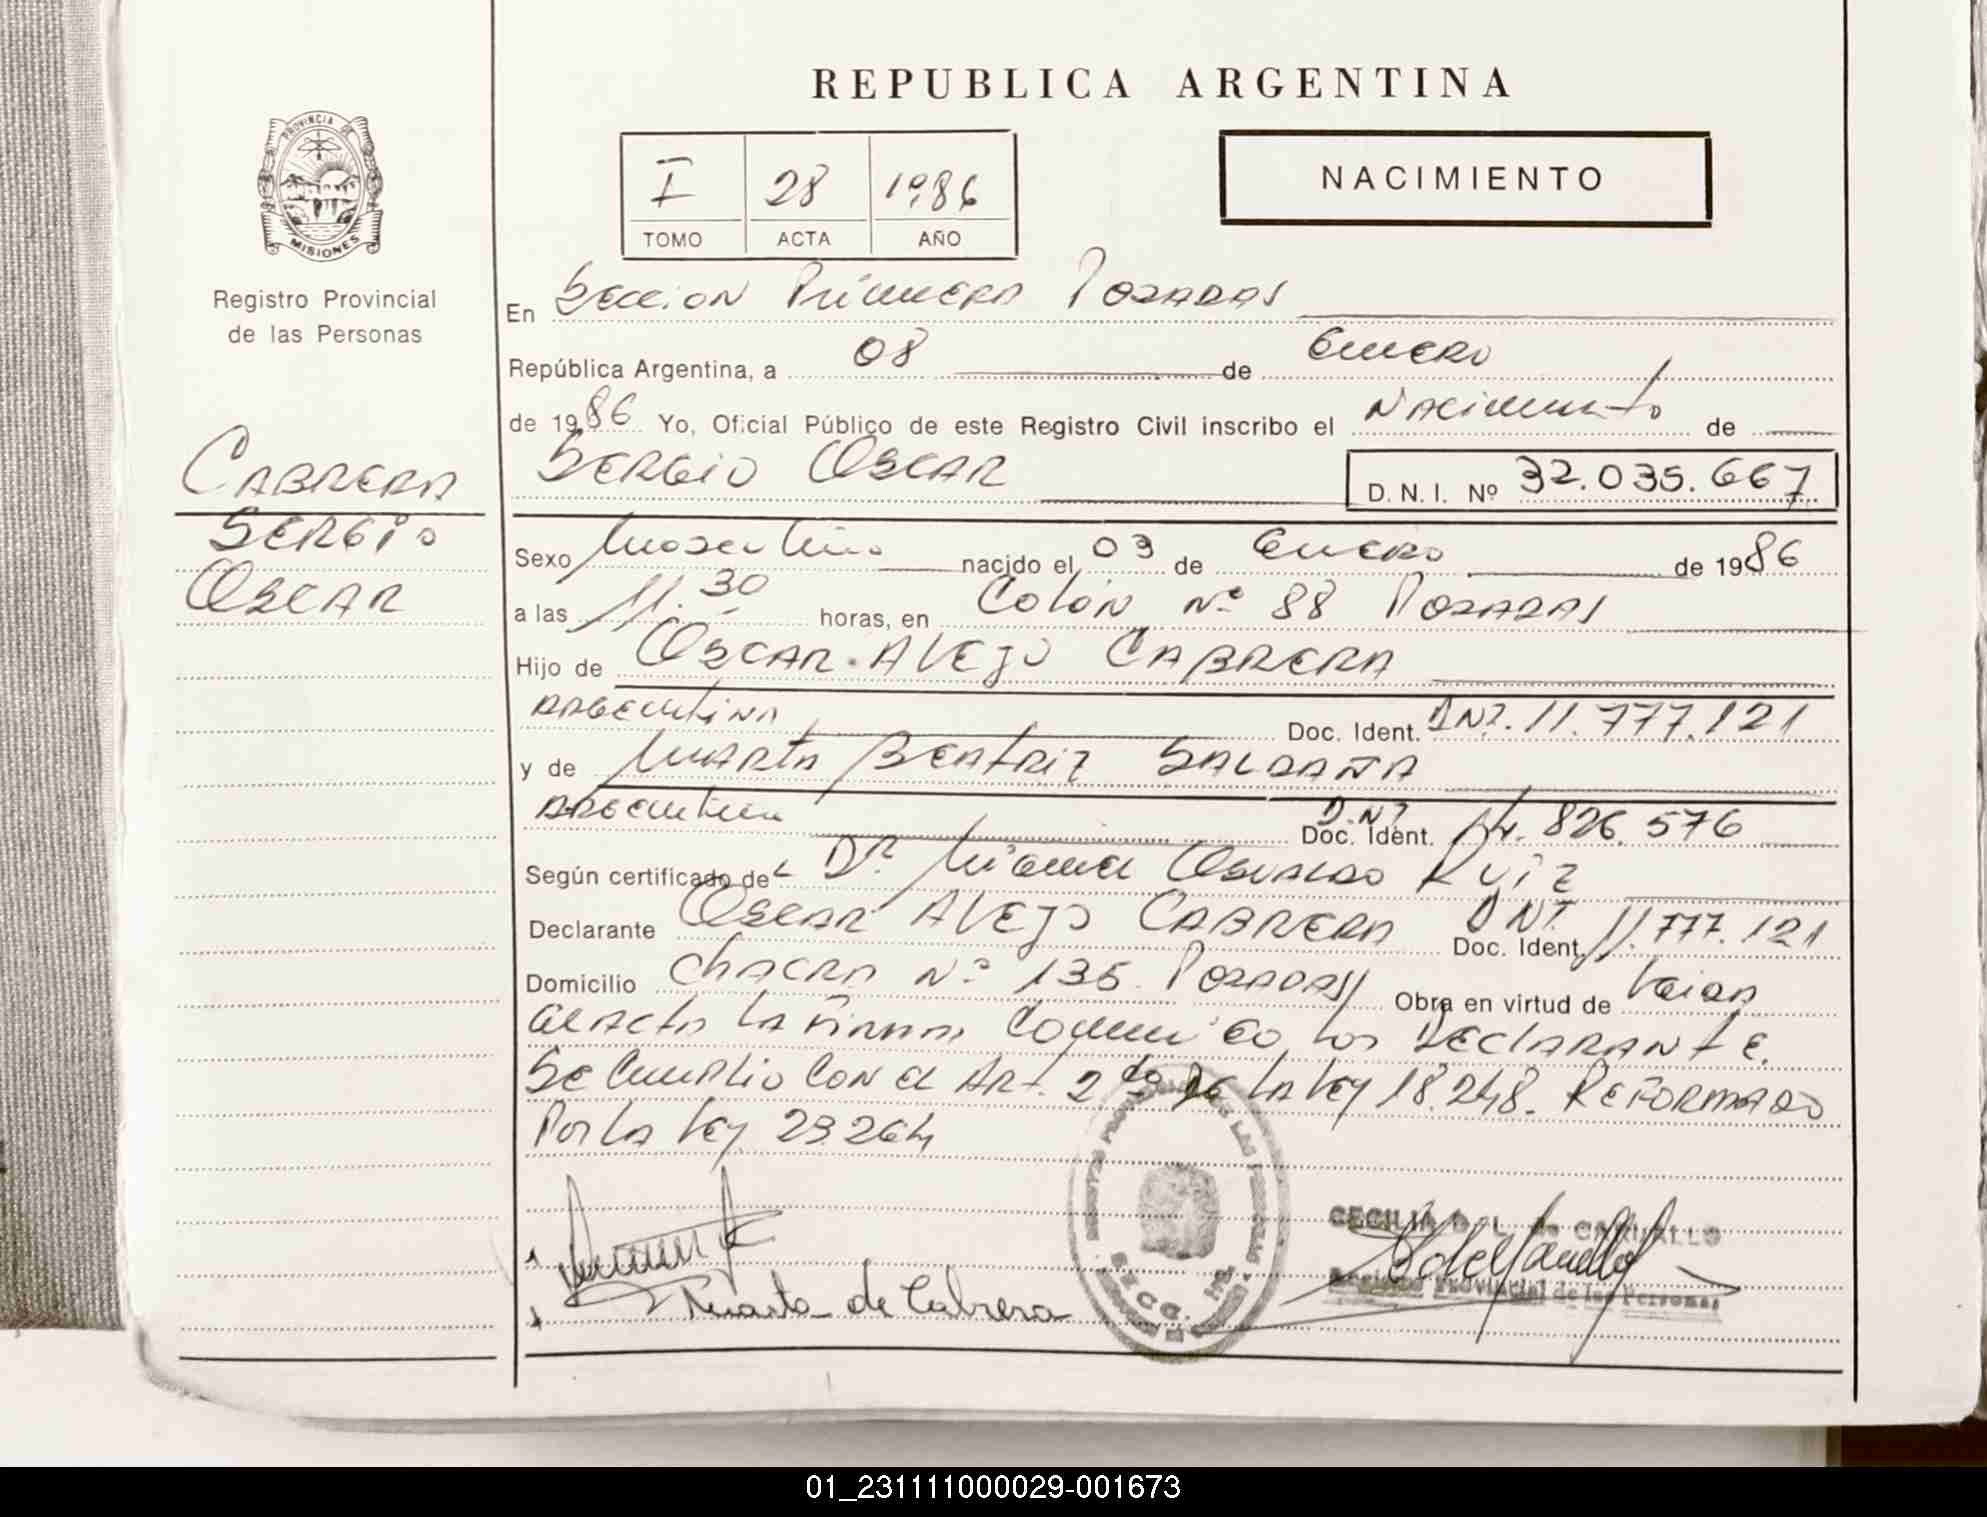 REPUBLICA ARGENTINA
PROVINCIA DE
MISIONES
Registro Provincial
de las Personas
I 28 1986
TOMO ACTA AÑO
NACIMIENTO
En Seccion Primera Posadas
República Argentina, a 08 de Enero
de 1986 Yo, Oficial Público de este Registro Civil inscribo el Nacimiento de
Sergio Oscar D. N. I. Nº 32.035.667
CABRERA
SERGIO
OSCAR
Sexo Masculino nacido el 03 de Enero de 1986
a las 11.30 horas, en Colón Nº 88 Posadas
Hijo de Oscar Alejo Cabrera
Argentina Doc. Ident. DNI. 11.777.121
y de Marta Beatriz Saldaña
Argentina Doc. Ident. D.NI. 14.826.576
Según certificado del Dr. Miguel Osvaldo Ruiz
Declarante Oscar Alejo Cabrera Doc. Ident. DNI. 11.777.121
Domicilio Chacra Nº 135 Posadas Obra en virtud de
el Acta la firman, conmigo los Declarante.
Se Cumplio con el Art. 2do de la Ley 18.248. Reformado
Por la Ley 23.264
Marta de Cabrera
CECILIA
Registro Provincial de las Personas
01_231111000029-001673